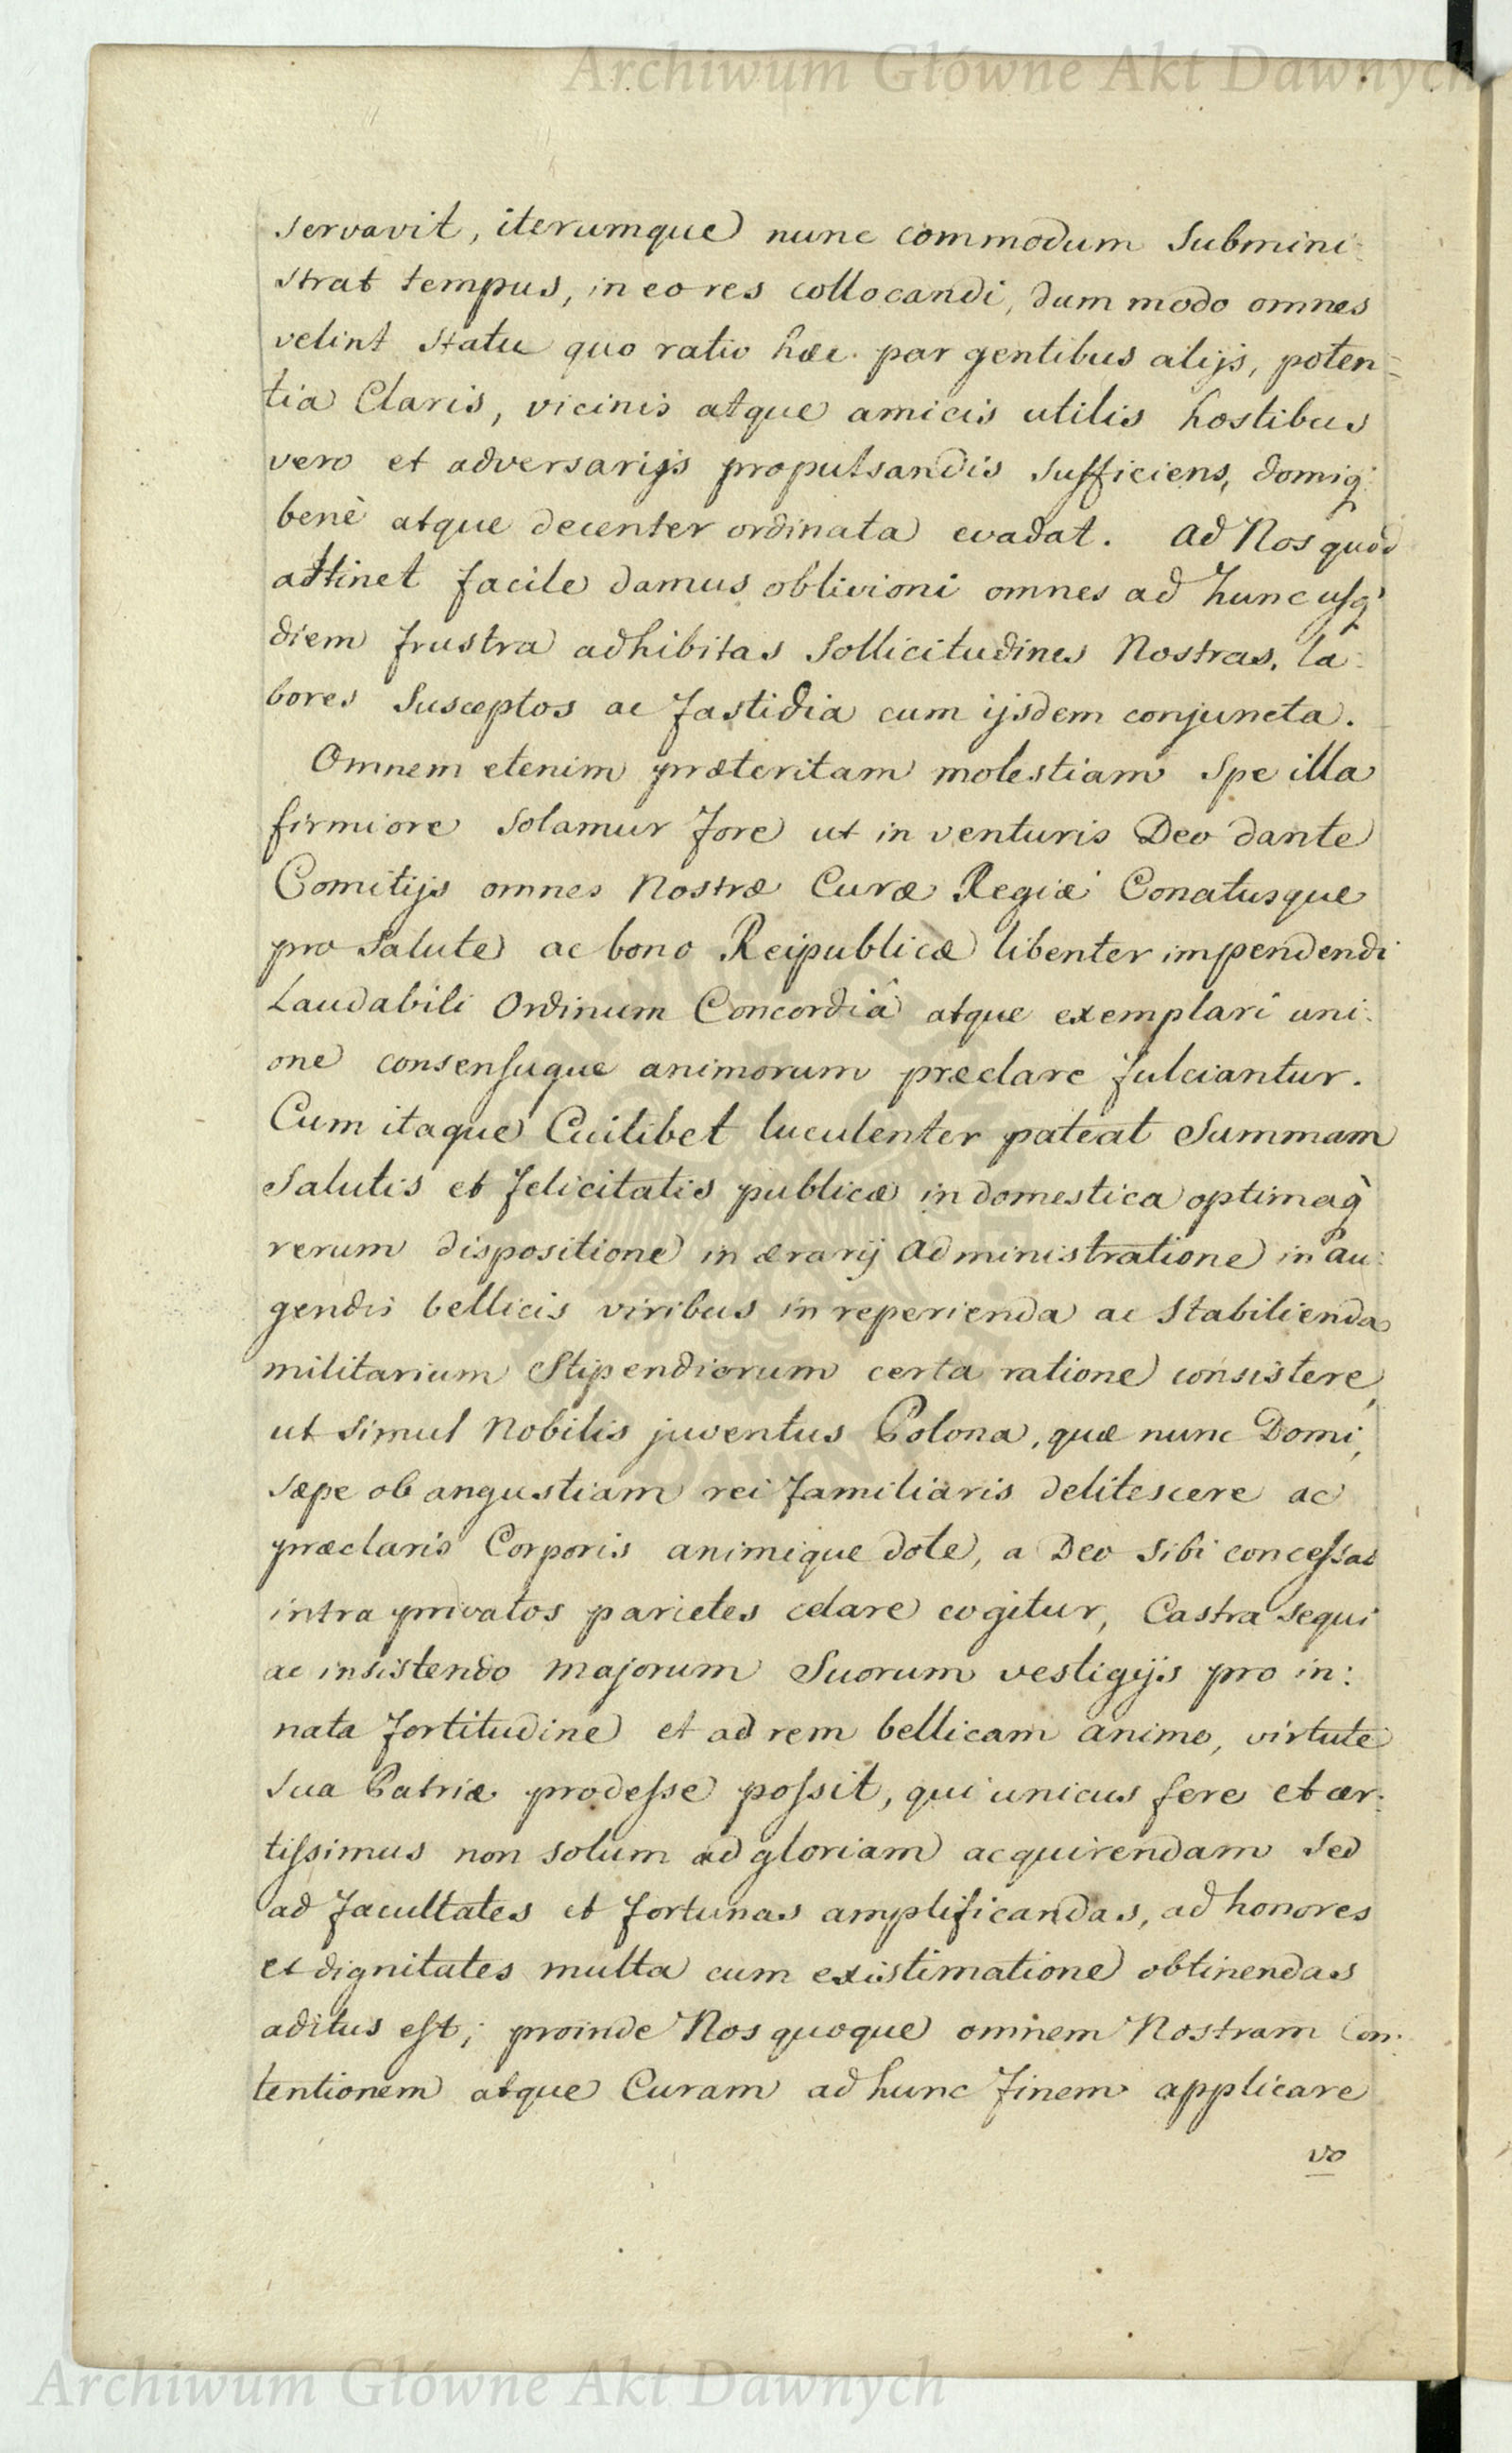 Archiwum Główne Akt Dawnych
servavit, iterumque nunc commodum submini:
strat tempus, in eo res collocandi, dum modo omnes
velint statu quo ratio hæc par gentibus alijs, poten=
tia Claris, vicinis atque amicis utilis hostibus
vero et adversarijs propulsandis sufficiens, domiq;
benè atque decenter ordinata evadat. Ad Nos quod
attinet facile damus oblivioni omnes ad hunc usq'
diem frustra adhibitas sollicitudines Nostras, la:
bores susceptos ac fastidia cum ijsdem conjuncta.
Omnem etenim præteritam molestiam spe illa
firmiore solamur fore ut in venturis Deo dante
Comitijs omnes Nostræ Curæ Regiæ Conatusque
pro salute ac bono Reipublicæ libenter impendendi
Laudabili Ordinum Concordiâ atque exemplari uni:
one consensuque animorum præclare fulciantur.
Cum itaque Cuilibet luculenter pateat Summam
Salutis et felicitatis publicæ in domestica optimaq̀
rerum dispositione in ærarij administratione in au:
gendis bellicis viribus in reperienda ac stabilienda
militarium Stipendiorum certa ratione consistere,
ut simul Nobilis juventus Polona, quæ nunc Domi,
sæpe ob angustiam rei familiaris delitescere ac
præclaris Corporis animique dote, a Deo sibi concessas
intra privatos parietes celare cogitur, Castra sequi
ac insistendo majorum Suorum vestigijs pro in:
nata fortitudine et ad rem bellicam animo, virtute
sua Patriæ prodesse possit, qui unicus fere et cer:
tissimus non solum ad gloriam acquirendam sed
ad facultates et fortunas amplificandas, ad honores
et dignitates multa cum existimatione obtinendas
aditus est; proinde Nos quoque omnem Nostram Con:
tentionem atque Curam ad hunc finem applicare
vo
Archiwum Główne Akt Dawnych